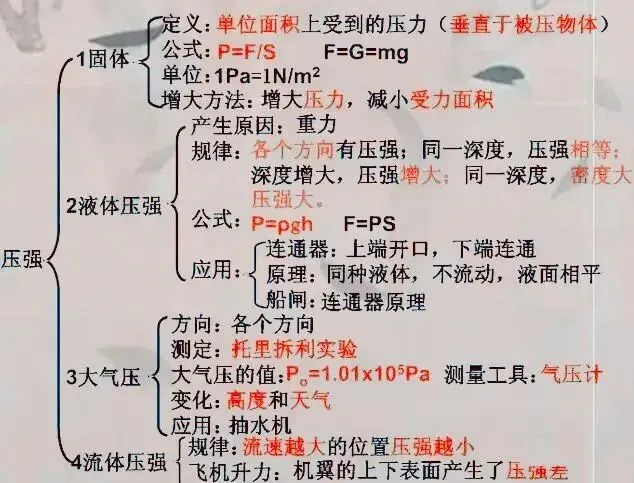 压强
1固体
定义：单位面积上受到的压力（垂直于被压物体）
公式：P=F/S F=G=mg
单位：1Pa=1N/m²
增大方法：增大压力，减小受力面积
2液体压强
产生原因：重力
规律：各个方向有压强；同一深度，压强相等；
深度增大，压强增大；同一深度，密度大
压强大。
公式：P=ρgh F=PS
应用：
连通器：上端开口，下端连通
原理：同种液体，不流动，液面相平
船闸：连通器原理
3大气压
方向：各个方向
测定：托里拆利实验
大气压的值：P₀=1.01x10⁵Pa 测量工具：气压计
变化：高度和天气
应用：抽水机
4流体压强
规律：流速越大的位置压强越小
飞机升力：机翼的上下表面产生了压强差